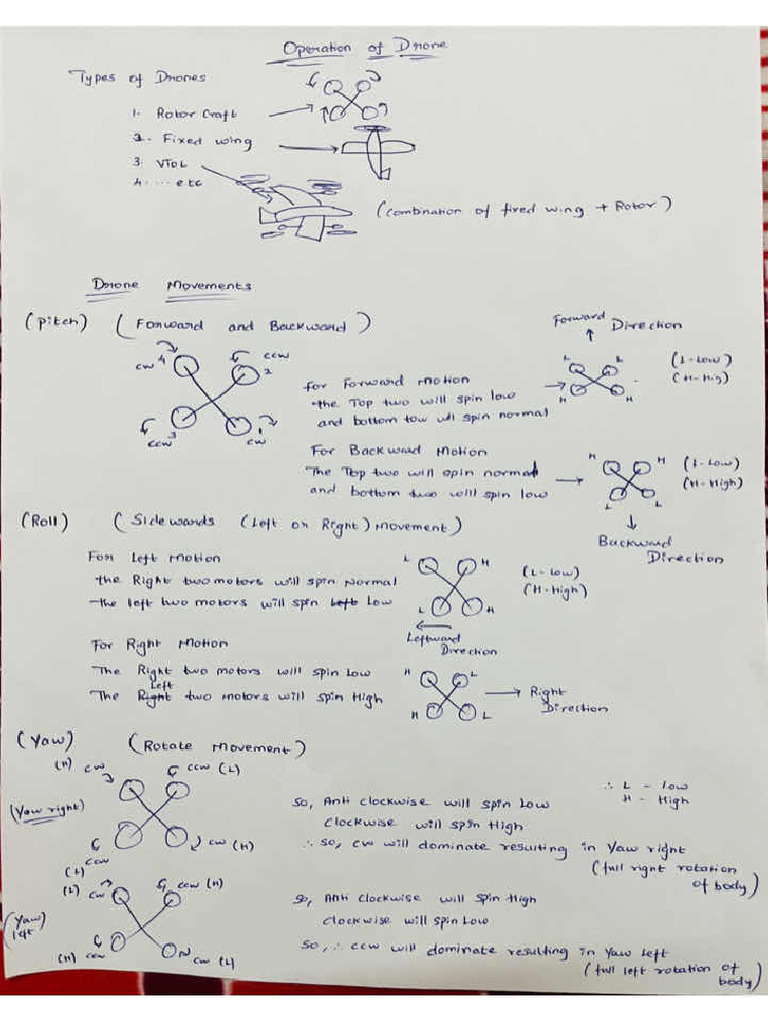 Operation of Drone
Types of Drones
1. Rotor Craft
2. Fixed wing
3. VTOL
4. ... etc
(combination of fixed wing + Rotor)
Drone Movements
(pitch) (Forward and Backward)
cw 4
ccw
2
ccw 3
1
cw
for Forward motion
the Top two will spin low
and bottom tow will spin normal
Forward Direction
L L
H H
(L-Low)
(H-Hig)
For Backward Motion
The Top two will spin normal
and bottom two will spin low
H H
L L
(L-Low)
(H-High)
Backward
Direction
(Roll) (Sidewards (Left or Right) movement)
For Left Motion
the Right two motors will spin Normal
the left two motors will spin left Low
L H
L H
(L-low)
(H-high)
Leftward
Direction
For Right Motion
The Right two motors will spin Low
Left
The Right two motors will spin High
H L
H L
Right
Direction
(Yaw) (Rotate Movement)
(H) cw
ccw (L)
(Yaw right)
ccw
cw (H)
(L)
So, Anti clockwise will spin Low
clockwise will spin High
∴ so, cw will dominate resulting in Yaw right
(full right rotation
of body)
∴ L - low
H - High
(L) cw
ccw (H)
(Yaw
left)
(H) ccw
cw (L)
so, Anti clockwise will spin High
clockwise will spin Low
So, ∴ ccw will dominate resulting in Yaw left
(full left rotation of
body)